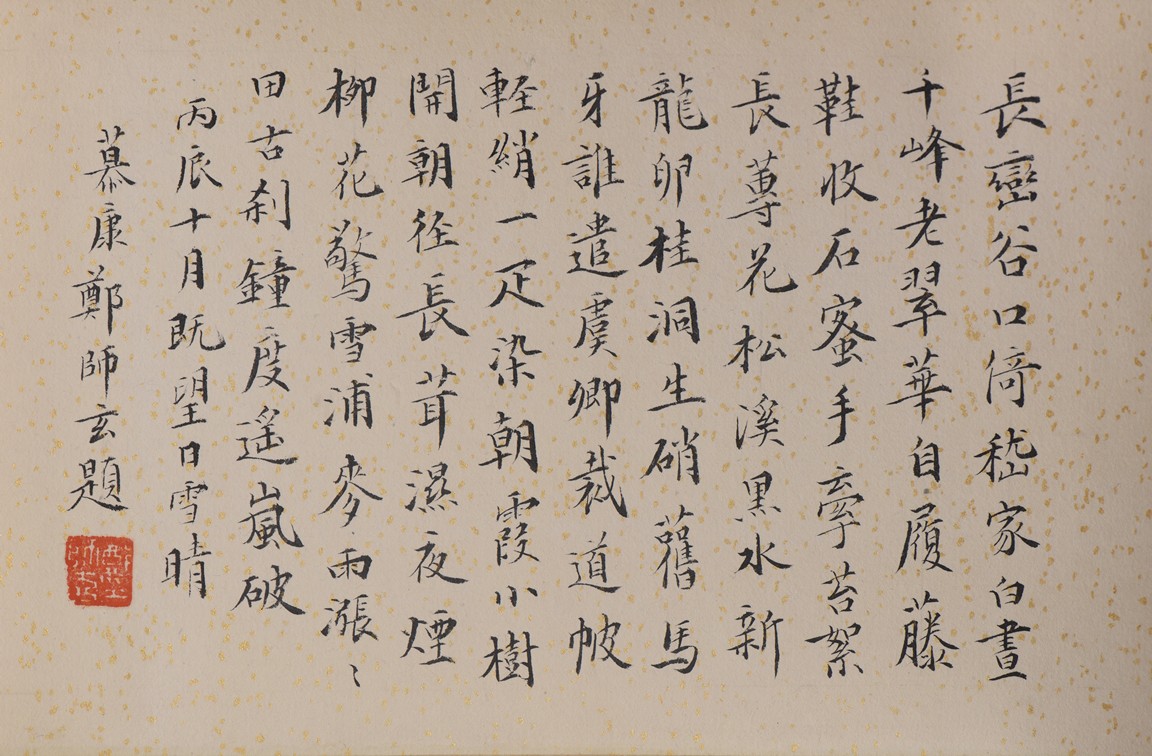 長巒谷口倚嵇家白晝
千峰老翠華自履藤
鞋收石蜜手牽苔絮
長蓴花松溪黑水新
龍卵桂洞生硝舊馬
牙誰遣虞卿裁道帔
軽綃一疋染朝霞小樹
開朝径長茸濕夜煙
柳花驚雪浦麥雨漲〻
田古刹鐘度遙嵐破
丙辰十月既望日雪晴
慕康鄭師玄題